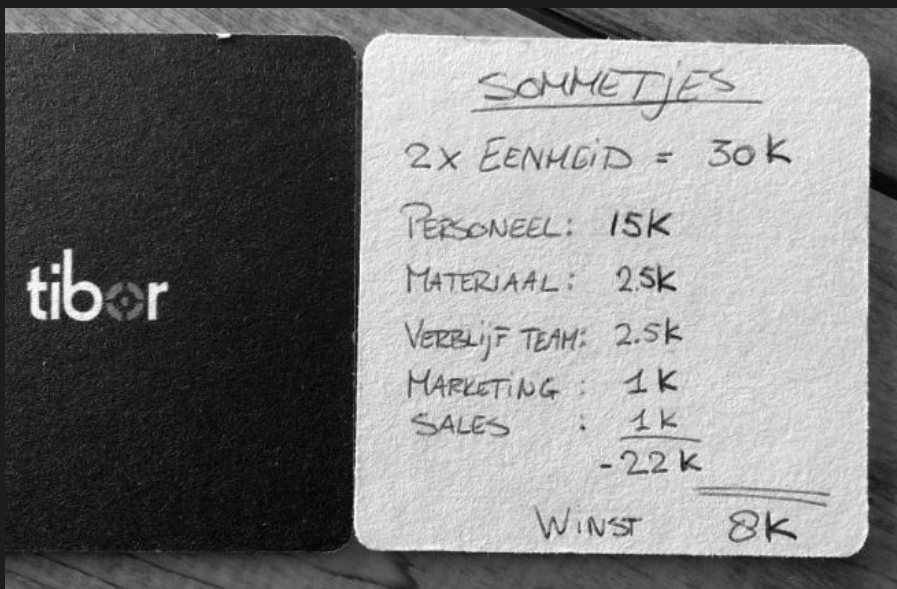 tibor
SOMMETjES
2x EENHEiD = 30K
PERSONEEL: 15K
MATERIAAL: 2.5K
VERBLijF TEAM: 2.5K
MARKETiNG : 1K
SALES : 1K
-22K
WiNST 8K